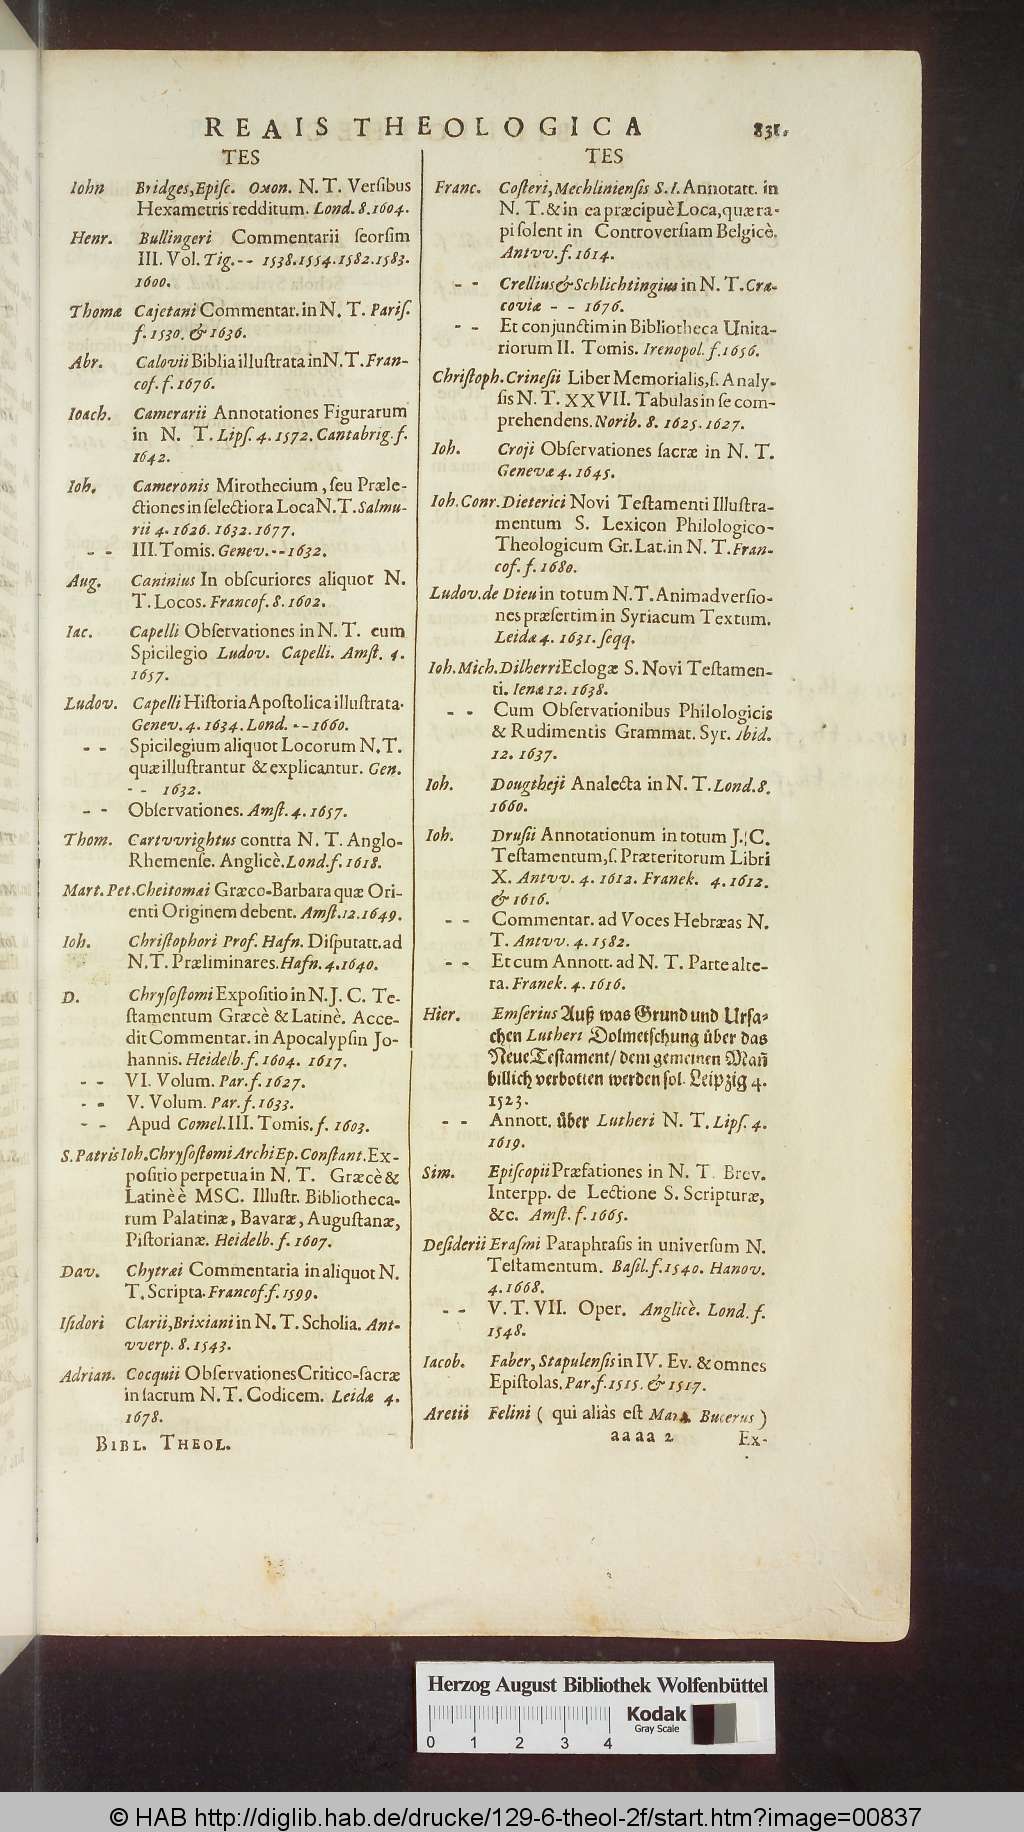 REAIS THEOLOGICA 831.
TES
Iohn Bridges, Episc. Oxon. N. T. Versibus
Hexametris redditum. Lond. 8. 1604.
Henr. Bullingeri Commentarii seorsim
III. Vol. Tig. -- 1538. 1554. 1582. 1583.
1600.
Thomæ Cajetani Commentar. in N. T. Paris.
f. 1530. & 1636.
Abr. Calovii Biblia illustrata in N. T. Fran-
cof. f. 1676.
Ioach. Camerarii Annotationes Figurarum
in N. T. Lips. 4. 1572. Cantabrig. f.
1642.
Ioh. Cameronis Mirothecium, seu Præle-
ctiones in selectiora Loca N. T. Salmu-
rii 4. 1626. 1632. 1677.
-- III. Tomis. Genev. -- 1632.
Aug. Caninius In obscuriores aliquot N.
T. Locos. Francof. 8. 1602.
Iac. Capelli Observationes in N. T. cum
Spicilegio Ludov. Capelli. Amst. 4.
1657.
Ludov. Capelli Historia Apostolica illustrata.
Genev. 4. 1634. Lond. -- 1660.
-- Spicilegium aliquot Locorum N. T.
quæ illustrantur & explicantur. Gen.
-- 1632.
-- Observationes. Amst. 4. 1657.
Thom. Cartvvrightus contra N. T. Anglo-
Rhemense. Anglicè. Lond. f. 1618.
Mart. Pet. Cheitomai Græco-Barbara quæ Ori-
enti Originem debent. Amst. 12. 1649.
Ioh. Christophori Prof. Hafn. Disputatt. ad
N. T. Præliminares. Hafn. 4. 1640.
D. Chrysostomi Expositio in N. J. C. Te-
stamentum Græcè & Latinè. Acce-
dit Commentar. in Apocalypsin Jo-
hannis. Heidelb. f. 1604. 1617.
-- VI. Volum. Par. f. 1627.
-- V. Volum. Par. f. 1633.
-- Apud Comel. III. Tomis. f. 1603.
S. Patris Ioh. Chrysostomi Archi Ep. Constant. Ex-
positio perpetua in N. T. Græcè &
Latinè è MSC. Illustr. Bibliotheca-
rum Palatinæ, Bavaræ, Augustanæ,
Pistorianæ. Heidelb. f. 1607.
Dav. Chytræi Commentaria in aliquot N.
T. Scripta. Francof. f. 1599.
Isidori Clarii, Brixiani in N. T. Scholia. Ant-
vverp. 8. 1543.
Adrian. Cocquii Observationes Critico-sacræ
in sacrum N. T. Codicem. Leidæ 4.
1678.
BIBL. THEOL.
TES
Franc. Costeri, Mechliniensis S. I. Annotatt. in
N. T. & in ea præcipuè Loca, quæ ra-
pi solent in Controversiam Belgicè.
Antvv. f. 1614.
-- Crellius & Schlichtingius in N. T. Cra-
coviæ -- 1676.
-- Et conjunctim in Bibliotheca Unita-
riorum II. Tomis. Irenopol. f. 1656.
Christoph. Crinesii Liber Memorialis, s. Analy-
sis N. T. XXVII. Tabulas in se com-
prehendens. Norib. 8. 1625. 1627.
Ioh. Croji Observationes sacræ in N. T.
Genevæ 4. 1645.
Ioh. Conr. Dieterici Novi Testamenti Illustra-
mentum S. Lexicon Philologico-
Theologicum Gr. Lat. in N. T. Fran-
cof. f. 1680.
Ludov. de Dieu in totum N. T. Animadversio-
nes præsertim in Syriacum Textum.
Leidæ 4. 1631. seqq.
Ioh. Mich. Dilherri Eclogæ S. Novi Testamen-
ti. Ienæ 12. 1638.
-- Cum Observationibus Philologicis
& Rudimentis Grammat. Syr. Ibid.
12. 1637.
Ioh. Dougtheji Analecta in N. T. Lond. 8.
1660.
Ioh. Drusii Annotationum in totum J. C.
Testamentum, s. Præteritorum Libri
X. Antvv. 4. 1612. Franek. 4. 1612.
& 1616.
-- Commentar. ad Voces Hebræas N.
T. Antvv. 4. 1582.
-- Et cum Annott. ad N. T. Parte alte-
ra. Franek. 4. 1616.
Hier. Emserius Auß was Grund und Ursa-
chen Lutheri Dolmetschung über das
Neue Testament/ dem gemeinen Mañ
billich verbotten werden sol. Leipzig 4.
1523.
-- Annott. über Lutheri N. T. Lips. 4.
1619.
Sim. Episcopii Præfationes in N. T. Brev.
Interpp. de Lectione S. Scripturæ,
&c. Amst. f. 1665.
Desiderii Erasmi Paraphrasis in universum N.
Testamentum. Basil. f. 1540. Hanov.
4. 1668.
-- V. T. VII. Oper. Anglicè. Lond. f.
1548.
Iacob. Faber, Stapulensis in IV. Ev. & omnes
Epistolas. Par. f. 1515. & 1517.
Aretii Felini ( qui aliàs est Mart. Bucerus )
aaaa 2 Ex-
Herzog August Bibliothek Wolfenbüttel
0 1 2 3 4
Kodak
Gray Scale
© HAB http://diglib.hab.de/drucke/129-6-theol-2f/start.htm?image=00837